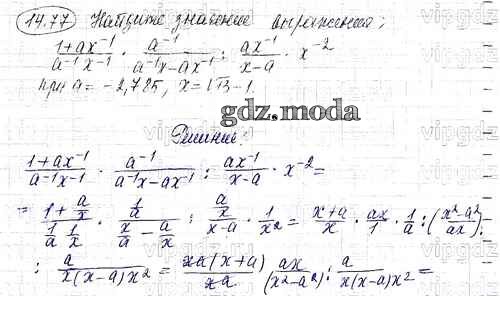 14.77 Найдите значение выражения:
(1+ax⁻¹)/(a⁻¹x⁻¹) · a⁻¹/(a⁻¹x-ax⁻¹) : ax⁻¹/(x-a) · x⁻²
при a = -2,785, x = √13-1.
gdz.moda
Решение:
(1+ax⁻¹)/(a⁻¹x-1) · a⁻¹/(a⁻¹x-ax⁻¹) : ax⁻¹/(x-a) · x⁻² =
= (1+a/x)/(1/a 1/x) · (1/a)/(x/a - a/x) : (a/x)/(x-a) · 1/x² = (x+a)/x · ax/1 · 1/a : ((x²-a²)/ax) :
: a/(x(x-a)x²) = xa(x+a)/xa · ax/(x²-a²) : a/(x(x-a)x²) =